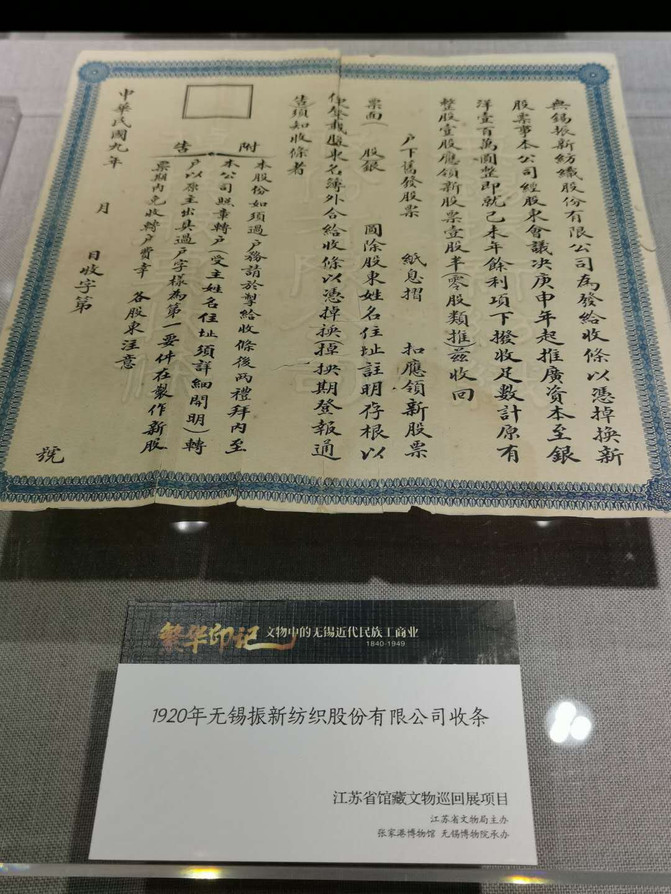 無錫振新紡織股份有限公司為發給收條以憑掉換新
股票事本公司經股東會議決庚申年起推廣資本至銀
洋壹百萬圓整即就己未年餘利項下撥收足數計原有
整股壹股應領新股票壹股半(零股類推)茲收回
戶下舊發股票 紙息摺 扣應領新股票
票面 股銀 圓除股東姓名住址註明存根以
便登載股東名簿外合給收條以憑掉換(掉換期登報通
告)須知收條者
附告
本股份如須過戶務請於掣給收條後兩禮拜內至
本公司照章轉戶(受主姓名住址須詳細開明)轉
戶以原主出具過戶字樣為第一要件在製作新股
票期內免收轉戶費幸 各股東注意
中華民國九年 月 日收字第 號
繁华印记 文物中的无锡近代民族工商业
1840-1949
1920年无锡振新纺织股份有限公司收条
江苏省馆藏文物巡回展项目
江苏省文物局主办
张家港博物馆 无锡博物院承办